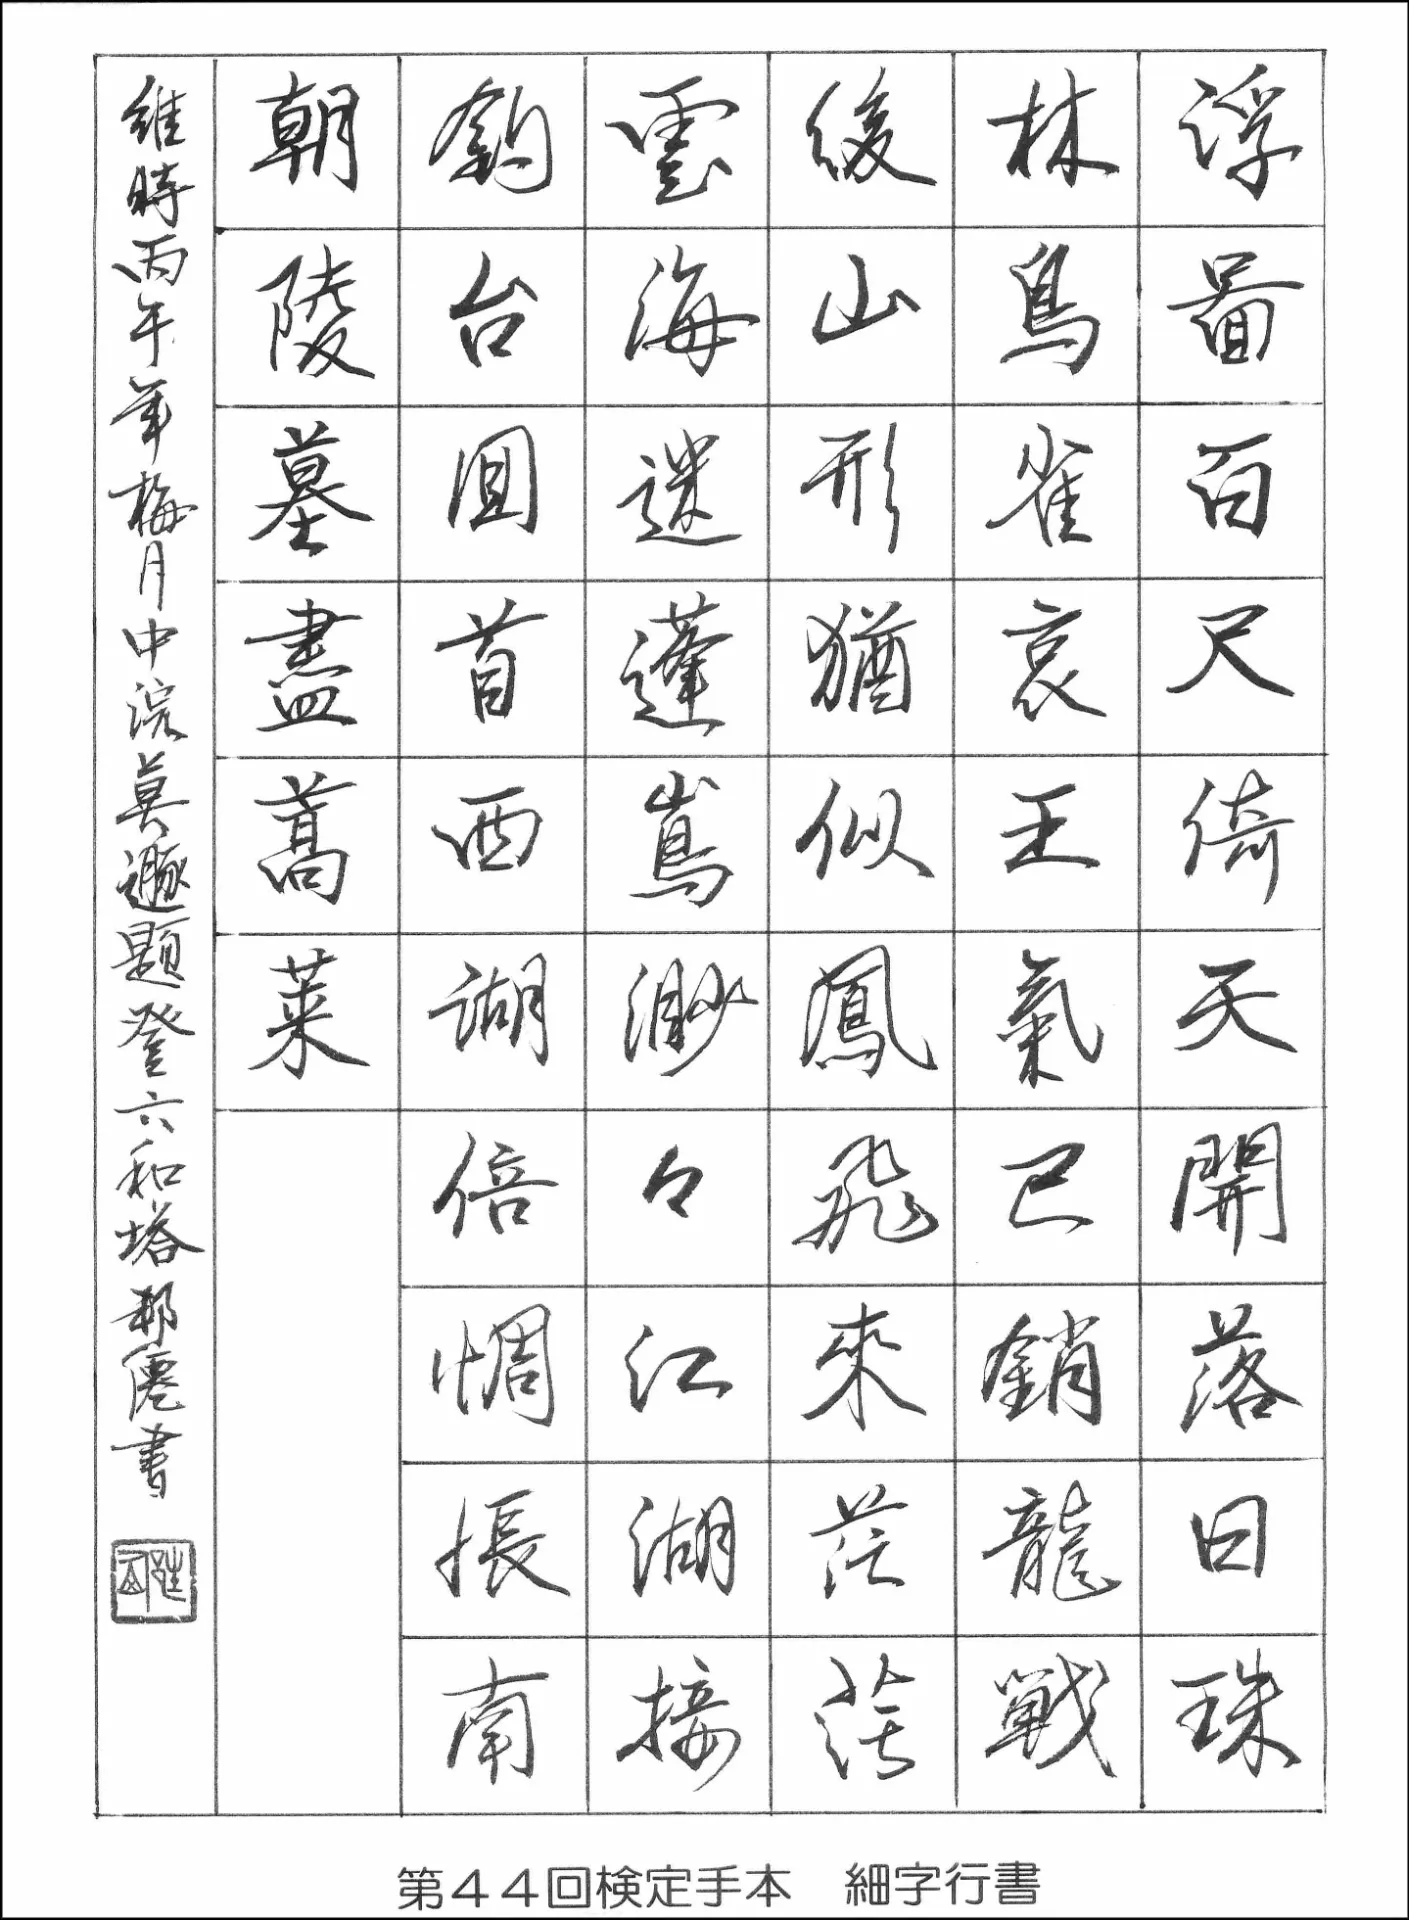 浮啚百尺倚天開落日珠
林鳥雀哀王氣已銷龍戰
後山形猶似鳳飛來茫茫
雲海迷蓬嶌渺々江湖接
釣台囬首西湖倍惆悵南
朝陵墓盡蒿萊
維時丙午年梅月中浣莫遯題登六和塔 書
第44回検定手本　細字行書